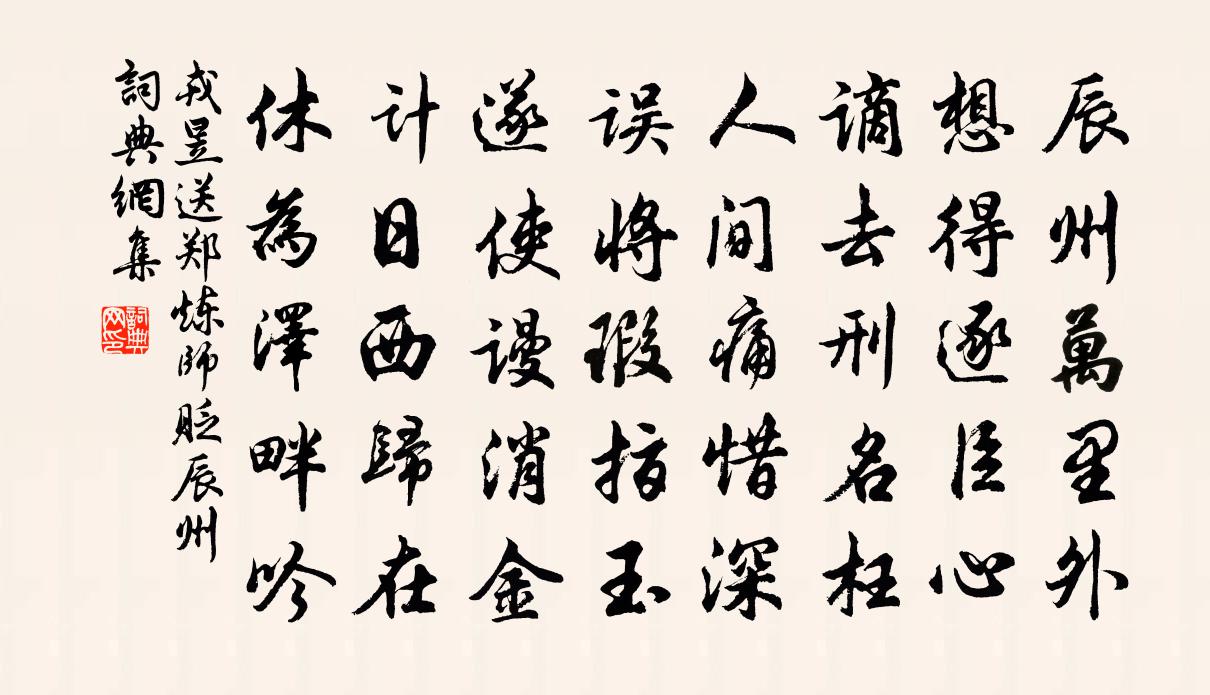 辰州萬里外
想得逐臣心
谪去刑名枉
人间痛惜深
误将瑕指玉
遂使谩消金
计日西歸在
休為澤畔吟
戎昱送郑炼师贬辰州
詞典網集
詞典网印